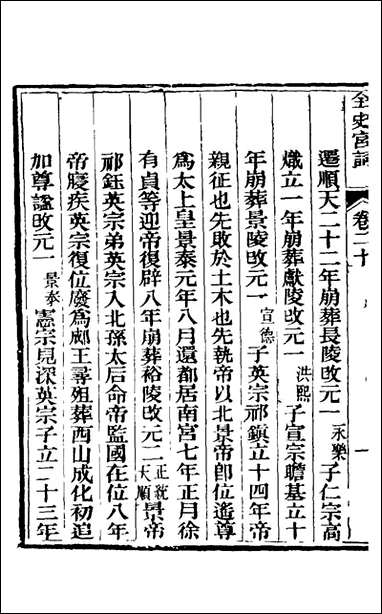 全史宮詞
卷二十
一
遷順天二十二年崩葬長陵改元一永樂子仁宗高
熾立一年崩葬獻陵改元一洪熙子宣宗瞻基立十
年崩葬景陵改元一宣德子英宗祁鎮立十四年帝
親征也先敗於土木也先執帝以北景帝即位遙尊
爲太上皇景泰元年八月還都居南宮七年正月徐
有貞等迎帝復辟八年崩葬裕陵改元二正統天順景帝
祁鈺英宗弟英宗入北孫太后命帝監國在位八年
帝寢疾英宗復位廢爲郕王尋殂葬西山成化初追
加尊諡改元一景泰憲宗見深英宗子立二十三年